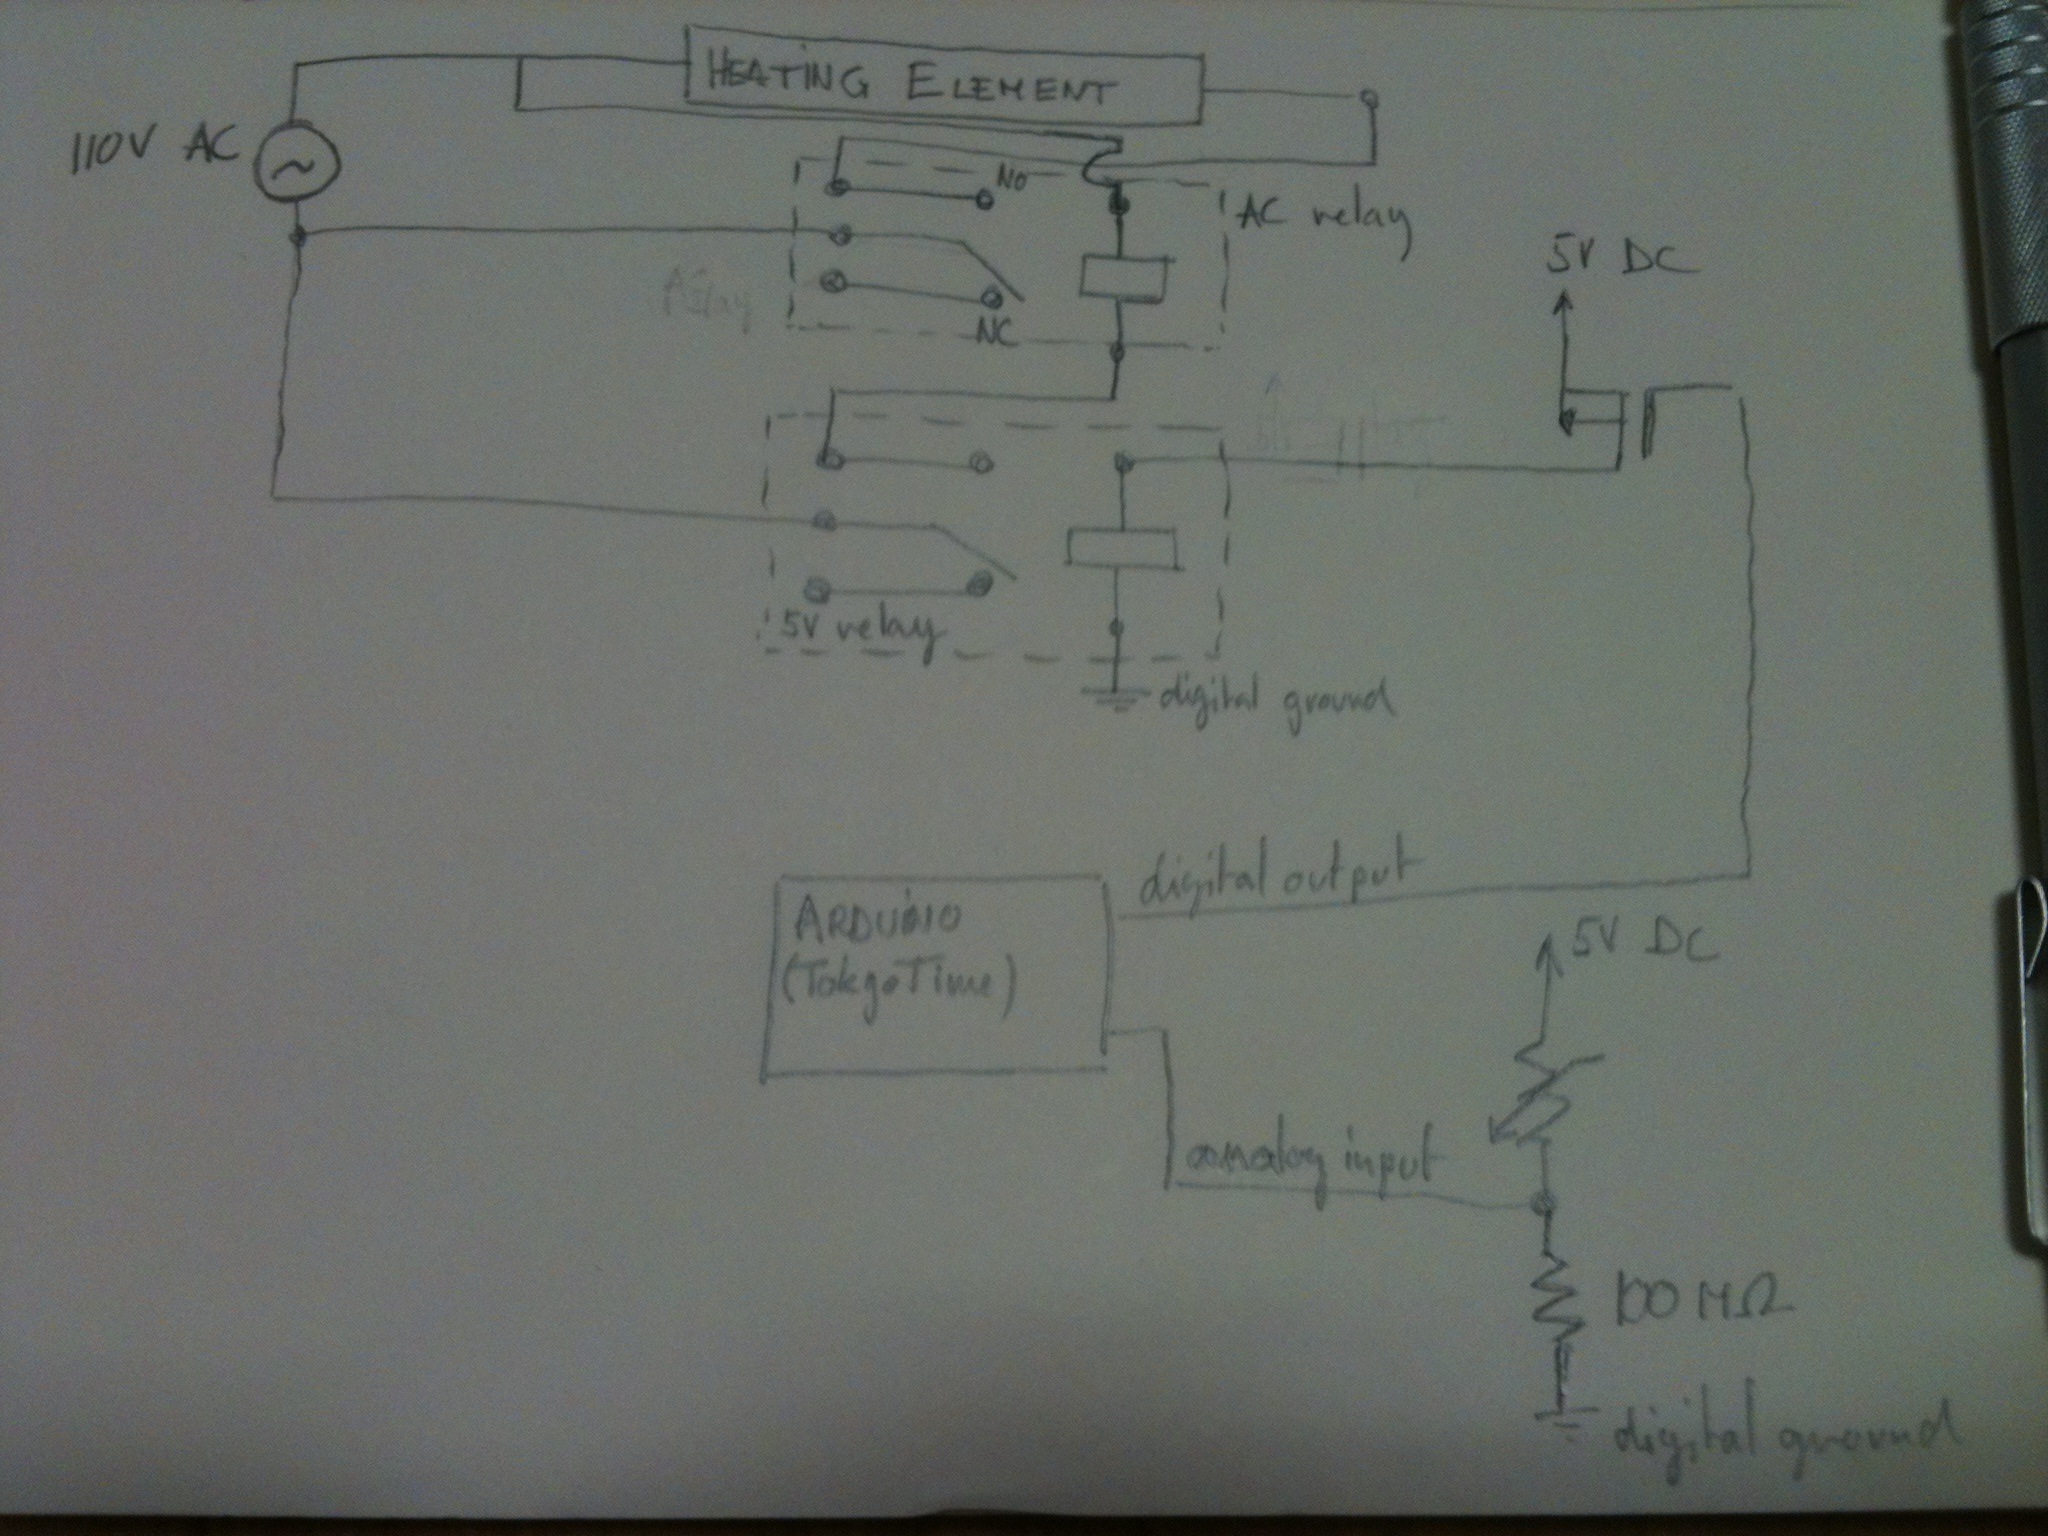 HEATING ELEMENT
110V AC
NO
AC relay
5V DC
NC
5V relay
digital ground
digital output
ARDUINO
(TokyoTime)
5V DC
analog input
100 MΩ
digital ground